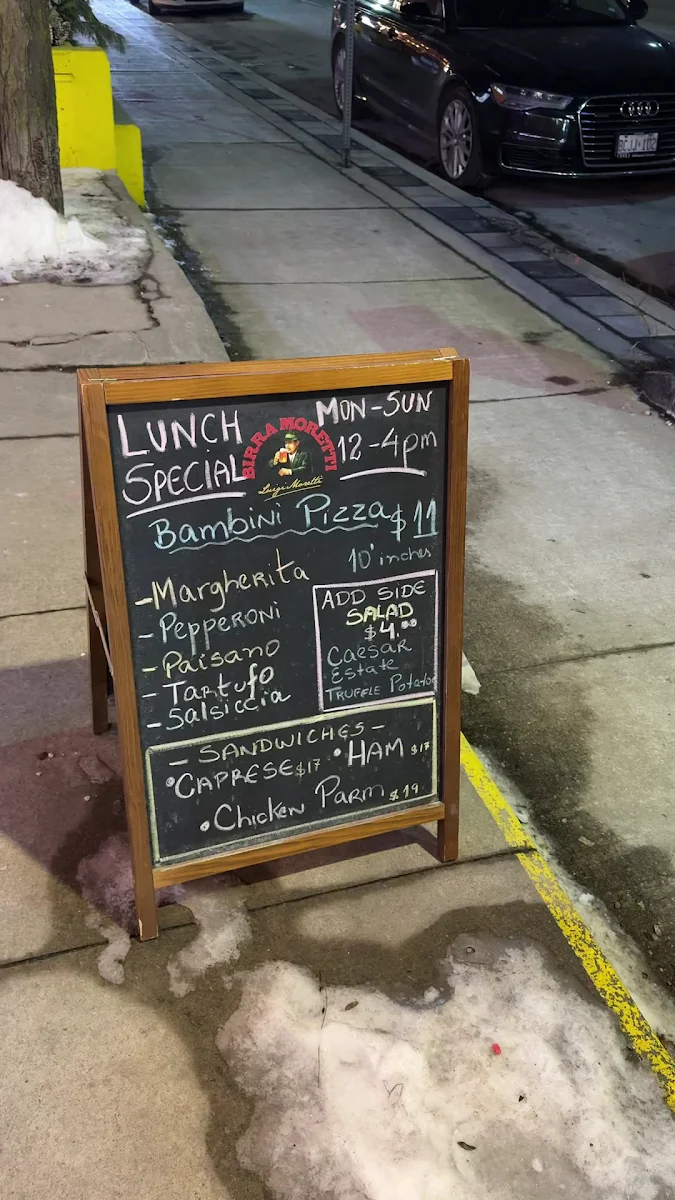 LUNCH
SPECIAL
BIRRA MORETTI
Luigi Moretti
MON-SUN
12-4pm
Bambini Pizza $11
10' inches
-Margherita
-Pepperoni
-Paisano
-Tartufo
-Salsiccia
ADD SIDE
SALAD
$4.00
Caesar
Estate
Truffle Potatoe
- SANDWICHES -
•CAPRESE $17 •HAM $17
•Chicken Parm $19